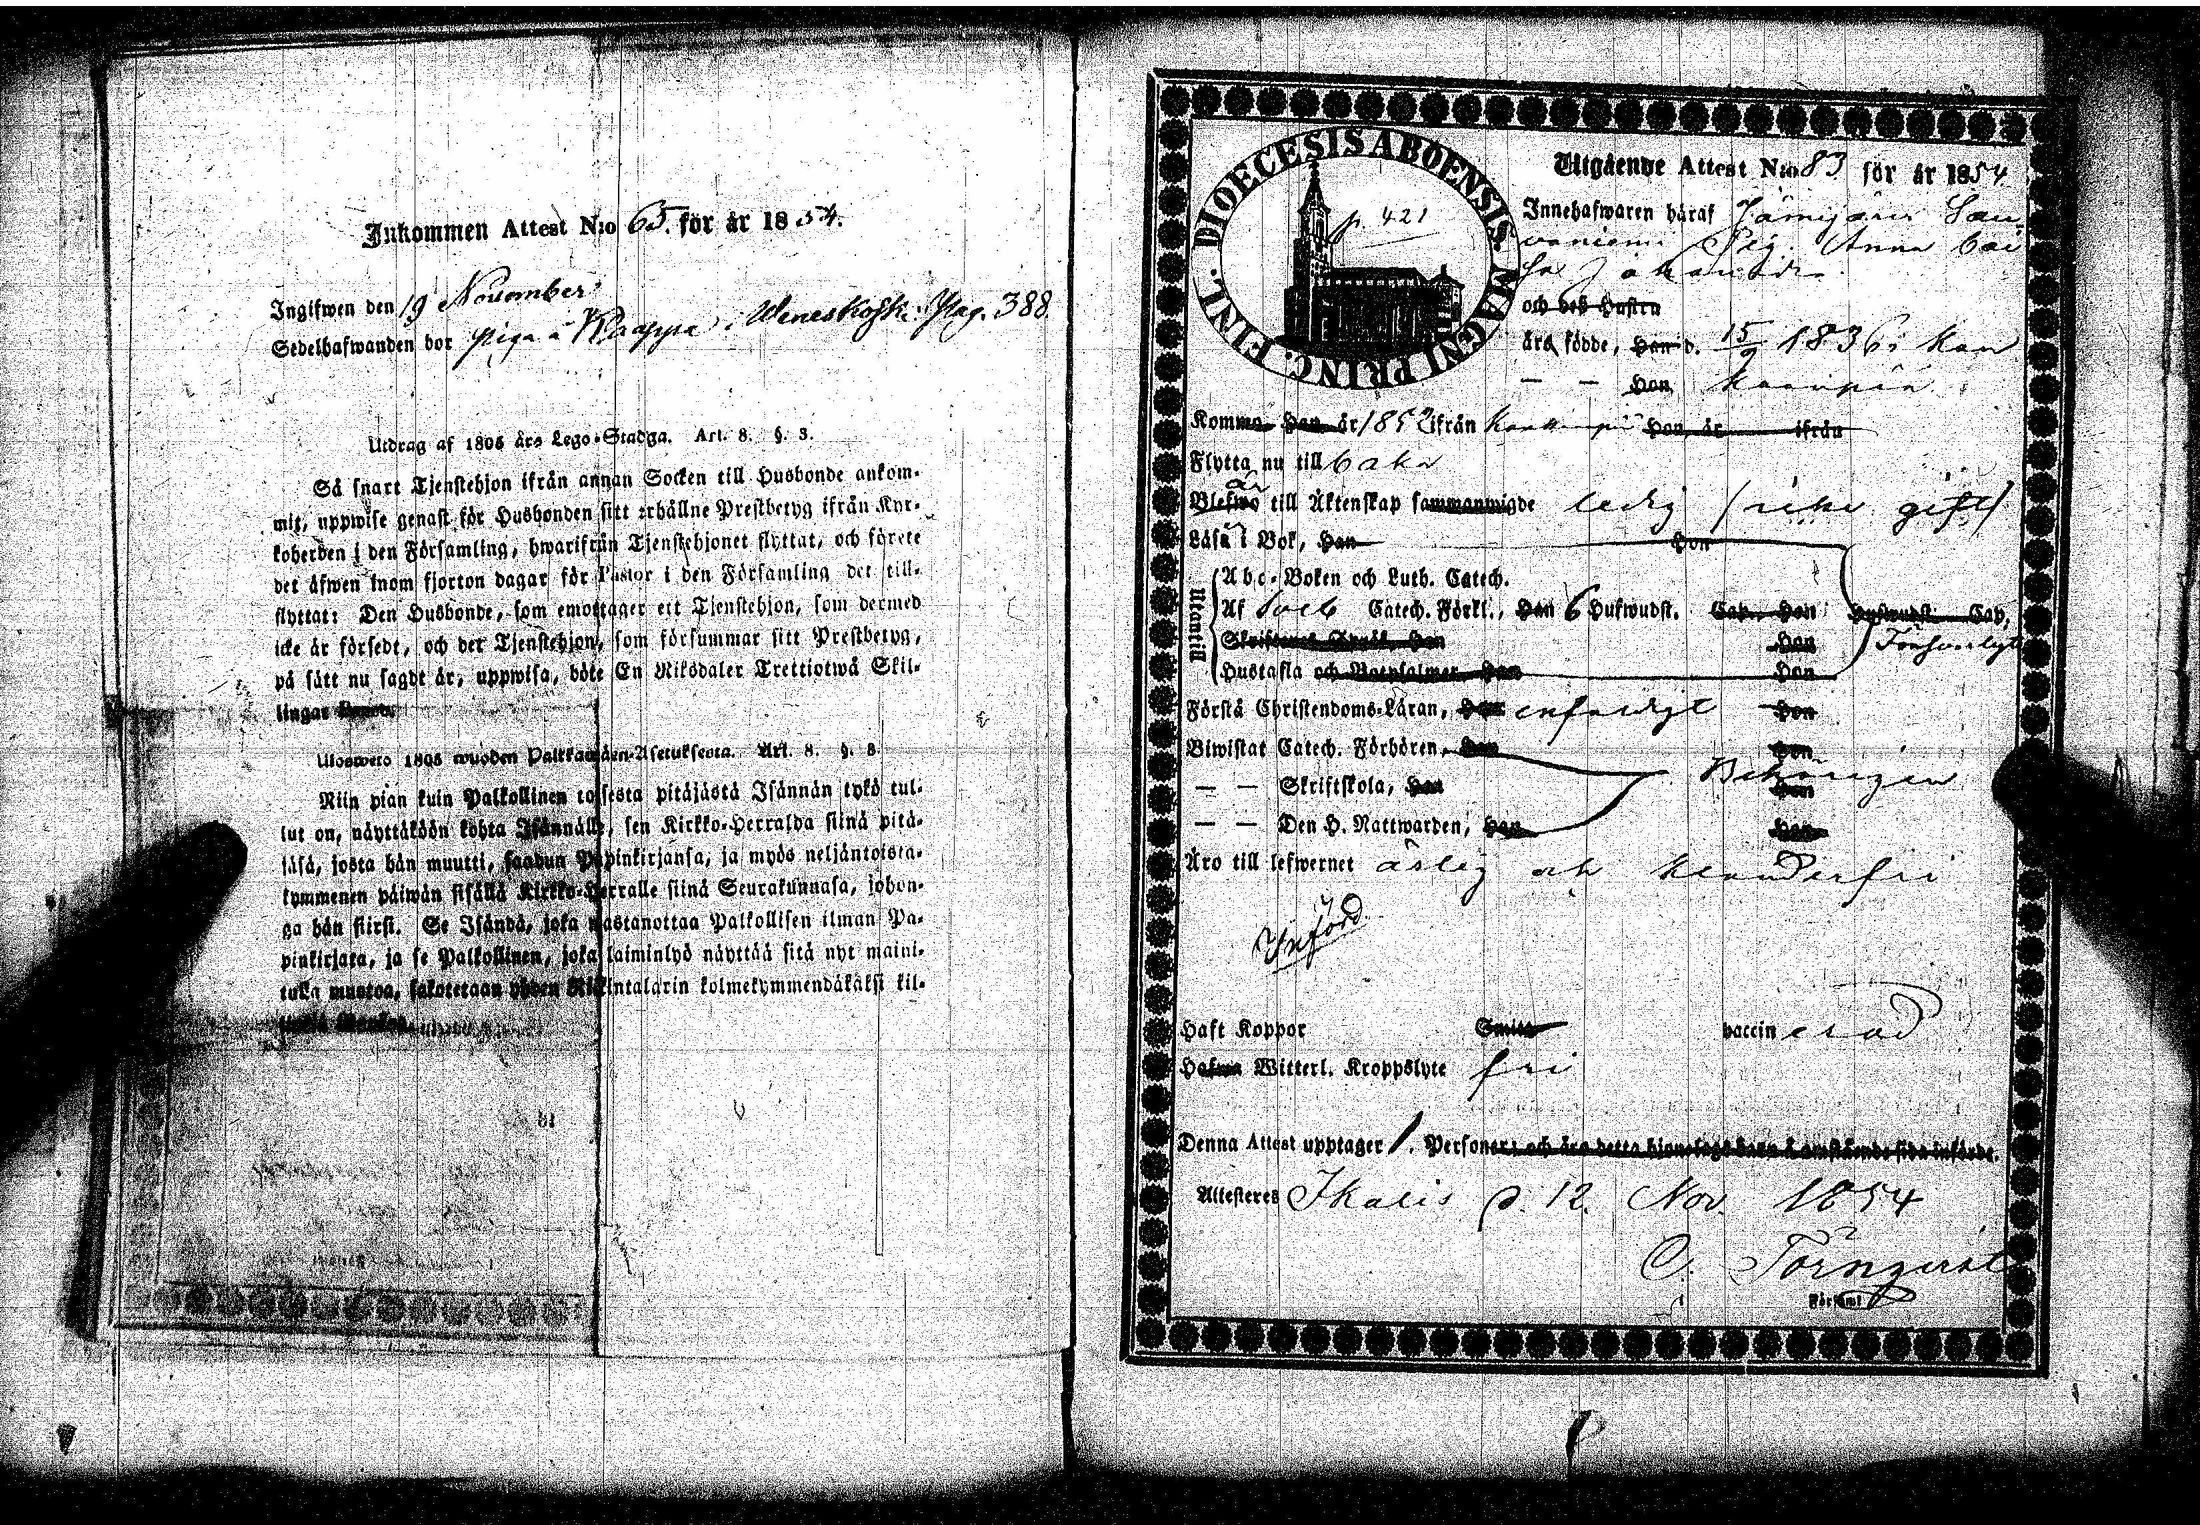 Inkommen Attest N:o 65. för år 1854.
Ingifwen den 19 November
Sedelhafwanden bor piga å Knappa i Weneskosk: Pag. 388
Utdrag af 1805 års Lego-Stadga. Art. 8. §. 3.
Så snart Tjenstehjon ifrån annan Socken till Husbonde ankom-
mit, uppwise genast för Husbonden sitt erhållne Prestbetyg ifrån Kyr-
koherden i den Församling, hwarifrån Tjenstehjonet flyttat, och förete
det äfwen inom fjorton dagar för Pastor i den Församling det till-
flyttat: Den Husbonde, som emottager ett Tjenstehjon, som dermed
icke är försedt, och der Tjenstehjon, som försummar sitt Prestbetyg,
på sätt nu sagdt är, uppwisa, böte En Riksdaler Trettiotwå Skil-
lingar
Uloswero 1805 wuoden Palkkawäen-Asetuksesta. Art. 8. §. 3.
Niin pian kuin Palkollinen toisesta pitäjästä Isännän tykö tul-
lut on, näyttäköön kohta Isännälle, sen Kirkko-Herralda siinä pitä-
jäsä, josta hän muutti, saadun Papinkirjansa, ja myös neljäntoista-
kymmenen päiwän sisällä Kirkko-Herralle siinä Seurakunnasa, johon-
ga hän siirsi. Se Isändä, joka wastanottaa Palkollisen ilman Pa-
pinkirjata, ja se Palkollinen, joka laiminlyö näyttää sitä nyt maini-
tulla muotoa, sakotetaan yhden Riikintalarin kolmekymmendäkaksi kil-
DIOECESIS ABOENSIS. MAGNI PRINC. FINL.
p. 421
Utgående Attest N:o 83 för år 1854.
Innehafwaren häraf Jämijärvi Sau
vaniemi Pig. Anna Cai
sa Johansdr.
och dess Hustru
äro födde, Han d. 15/9 1836 i Kan
— — Hon kaanpää
Komme Han år 1852 ifrån Hon år ifrån
Flytta nu till baka
är
Blefwo till Äktenskap sammanwigde ledig (icke gift)
Läsa i Bok, Han Hon
Utantill
Abc-Boken och Luth. Catech.
Af Sveb Catech. Förkl., Han 6 Hufwudst. Cap. Hon Hufwudst. Cap,
Skriftenes Språk, Han Hon Försvarligt
Hustafla och Botpsalmer Han Hon
Förstå Christendoms-Läran, Han enfaldigt Hon
Biwistat Catech. Förhören, Han Hon
Behörigen
— — Skriftskola, Han Hon
— — Den H. Nattwarden, Han Hon
Äro till lefwernet ärlig och klanderfri
Införd
Haft Koppor Smitt vaccinerad
Hafwa Witterl. Kroppslyte fri
Denna Attest upptager 1. Personer; och äro detta hjonelags barn å omstående sida införde.
Attesteres Ikalis d. 12. Nov. 1854
C. Törnqvist